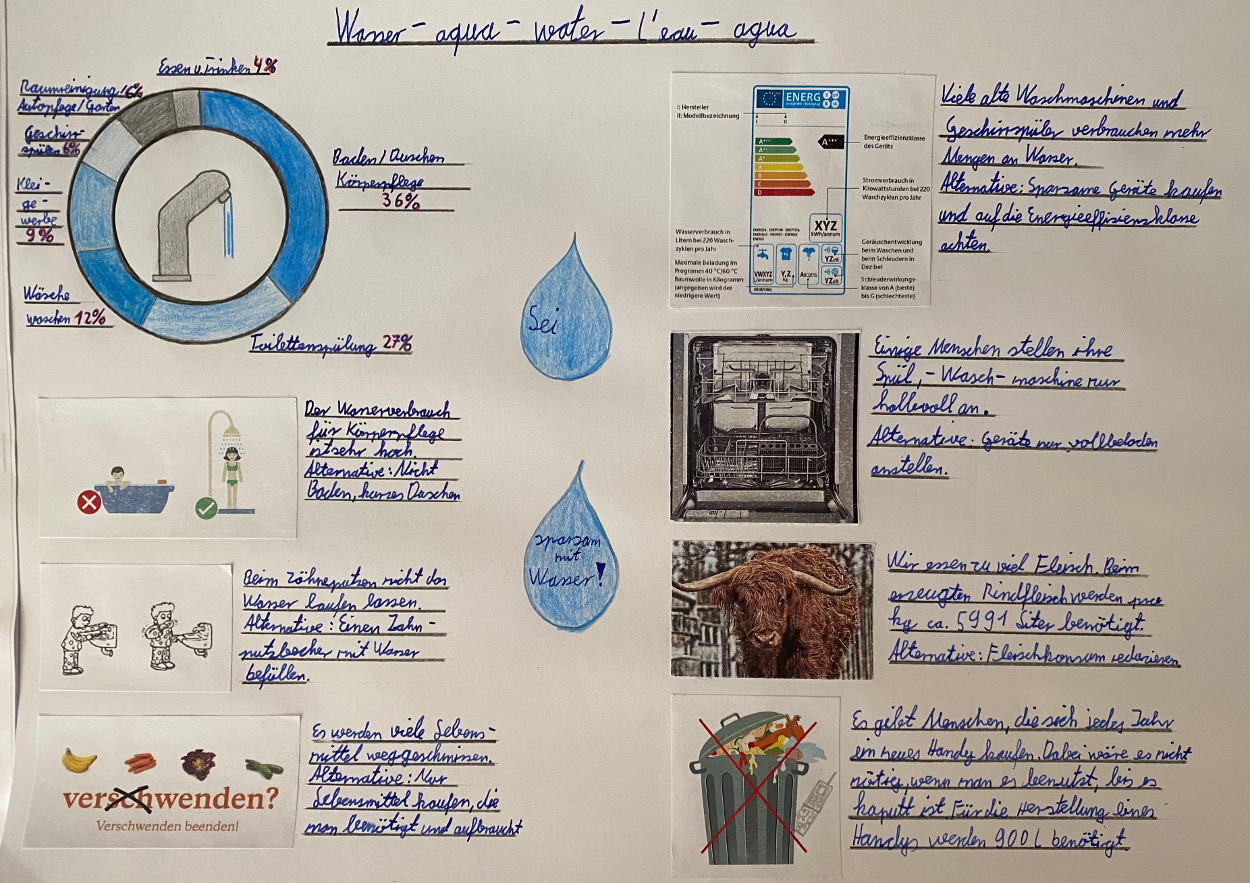 Wasser - aqua - water - l'eau - agua
Essen u. Trinken 4%
Raumreinigung/6%
Autopflege/Garten
Geschirr-
spülen 6%
Klei-
ge-
werbe
9%
Wäsche
waschen 12%
Toilettenspülung 27%
Baden/Duschen
Körperpflege
36%
Der Wasserverbrauch
für Körperpflege
ist sehr hoch.
Alternative: Nicht
Baden, kurzes Duschen
Beim Zähneputzen nicht das
Wasser laufen lassen.
Alternative: Einen Zahn-
putzbecher mit Wasser
befüllen.
verschwenden?
Verschwenden beenden!
Es werden viele Lebens-
mittel weggeschmissen.
Alternative: Nur
Lebensmittel kaufen, die
man benötigt und aufbraucht
Sei
sparsam
mit
Wasser!
I: Hersteller
II: Modellbezeichnung
ENERG
I II
A+++
A++
A+
A
B
C
D
A+++
Energieeffizienzklasse
des Geräts
Stromverbrauch in
Kilowattstunden bei 220
Waschzyklen pro Jahr
XYZ
kWh/annum
Wasserverbrauch in
Litern bei 220 Wasch-
zyklen pro Jahr
Maximale Beladung im
Programm 40 °C/60 °C
Baumwolle in Kilogramm
(angegeben wird der
niedrigere Wert)
VWXYZ
L/annum
Y,Z
kg
ABCDEFG
YZdB
YZdB
Geräuschentwicklung
beim Waschen und
beim Schleudern in
Dezibel
Schleuderwirkungs-
klasse von A (beste)
bis G (schlechteste)
Viele alte Waschmaschinen und
Geschirrspüler verbrauchen mehr
Mengen an Wasser.
Alternative: Sparsame Geräte kaufen
und auf die Energieeffiziensklasse
achten.
Einige Menschen stellen ihre
Spül,- Wasch- maschine nur
halbvoll an.
Alternative: Geräte nur vollbeladen
anstellen.
Wir essen zu viel Fleisch. Beim
erzeugten Rindfleisch werden pro
kg ca. 5991 Liter benötigt.
Alternative: Fleischkonsum reduzieren
Es gibt Menschen, die sich jedes Jahr
ein neues Handy kaufen. Dabei wäre es nicht
nötig, wenn man es benutzt, bis es
kaputt ist Für die Herstellung eines
Handys werden 900 l benötigt.